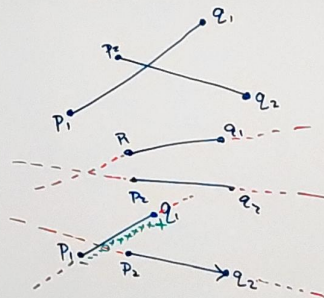 q₁
p₂
q₂
p₁
p₁ q₁
p₂ q₂
q₁
p₁ p₂
q₂